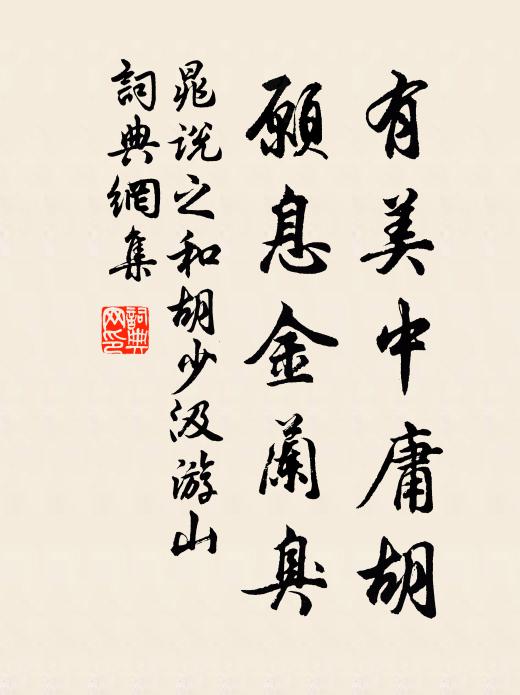 有美中庸胡
願息金蘭臭
晁說之和胡少汲游山
詞典網集
詞典
网印